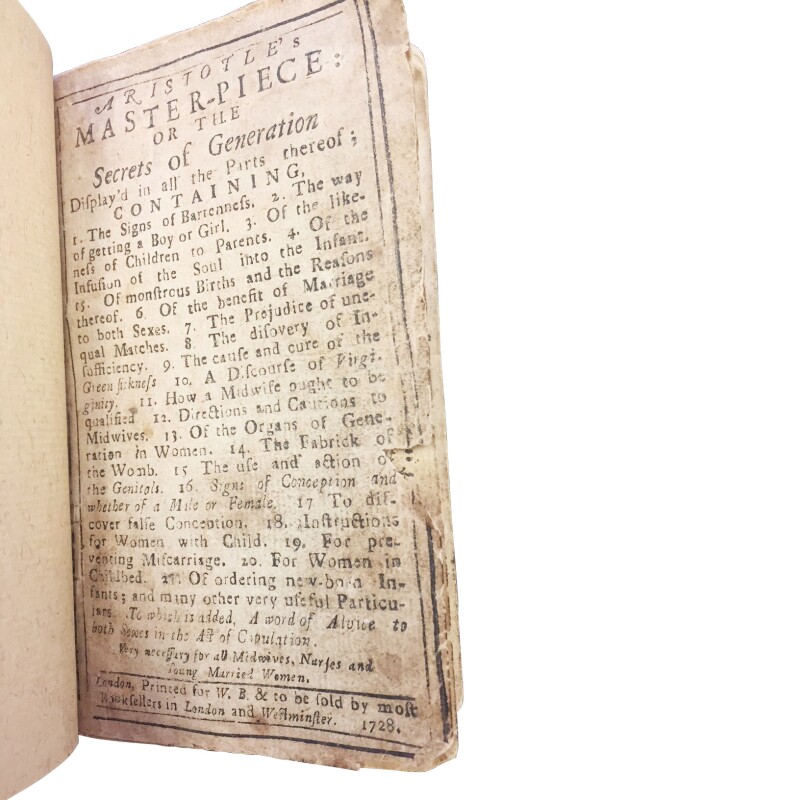 ARISTOTLE's
MASTER-PIECE:
OR THE
Secrets of Generation
Diſplay'd in all the Parts thereof;
CONTAINING,
1. The Signs of Barrenneſs. 2. The way
of getting a Boy or Girl. 3. Of the like-
neſs of Children to Parents. 4. Of the
Infuſion of the Soul into the Infant.
5. Of monſtrous Births and the Reaſons
thereof. 6. Of the benefit of Marriage
to both Sexes. 7. The Prejudice of une-
qual Matches. 8. The diſovery of In-
ſufficiency. 9. The cauſe and cure of the
Green ſickneſs 10. A Diſcourſe of Virgi-
ginity. 11. How a Midwife ought to be
qualified 12. Directions and Cautions to
Midwives. 13. Of the Organs of Gene-
ration in Women. 14. The Fabrick of
the Womb. 15 The uſe and action of
the Genitals. 16. Signs of Conception and
whether of a Male or Female. 17 To diſ-
cover falſe Conception. 18. Inſtructions
for Women with Child. 19. For pre-
venting Miſcarriage. 20. For Women in
Childbed. 21. Of ordering new-born In-
fants; and many other very uſeful Particu-
lars. To which is added, A word of Advice to
both Sexes in the Act of Copulation.
Very neceſſary for all Midwives, Nurſes and
Young Married Women.
London, Printed for W. B. & to be ſold by moſt
Bookſellers in London and Weſtminſter. 1728.